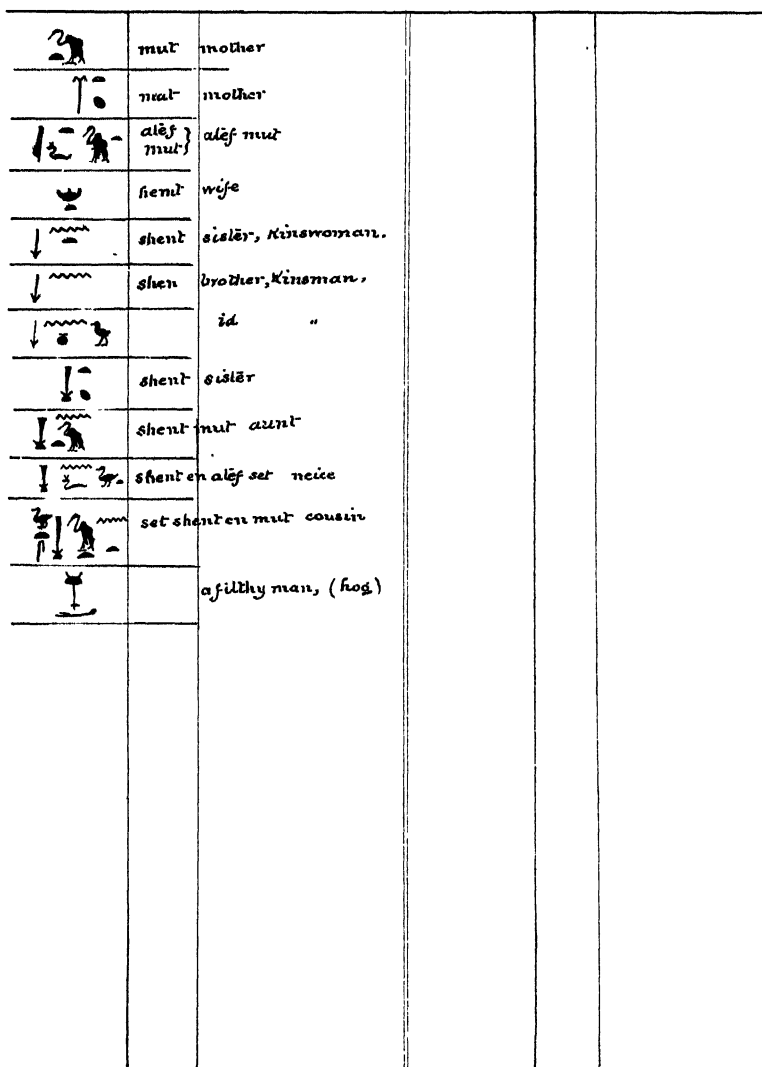 mut mother
mat mother
alēf mut } alēf mut
hemt wife
shent sistēr, Kinswoman.
shen brother, Kinsman,
id "
shent sistēr
shent mut aunt
shent en alēf set neice
set shent en mut cousin
a filthy man, (hog)